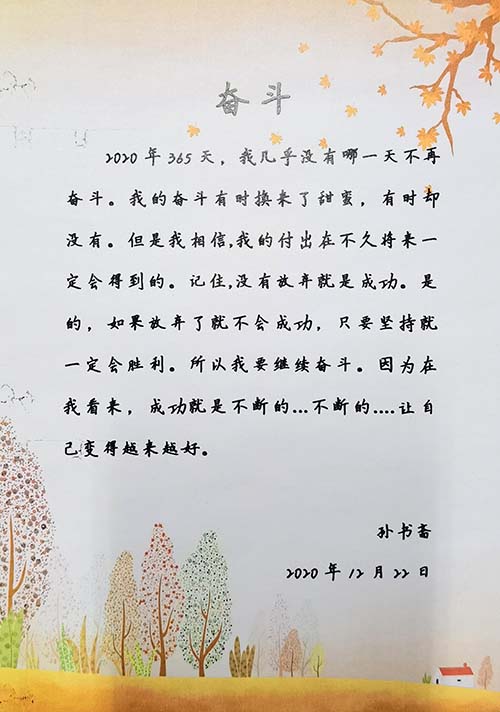 奋斗
2020年365天，我几乎没有哪一天不再
奋斗。我的奋斗有时换来了甜蜜，有时却
没有。但是我相信，我的付出在不久将来一
定会得到的。记住，没有放弃就是成功。是
的，如果放弃了就不会成功，只要坚持就
一定会胜利。所以我要继续奋斗。因为在
我看来，成功就是不断的...不断的....让自
己变得越来越好。
孙书斋
2020年12月22日